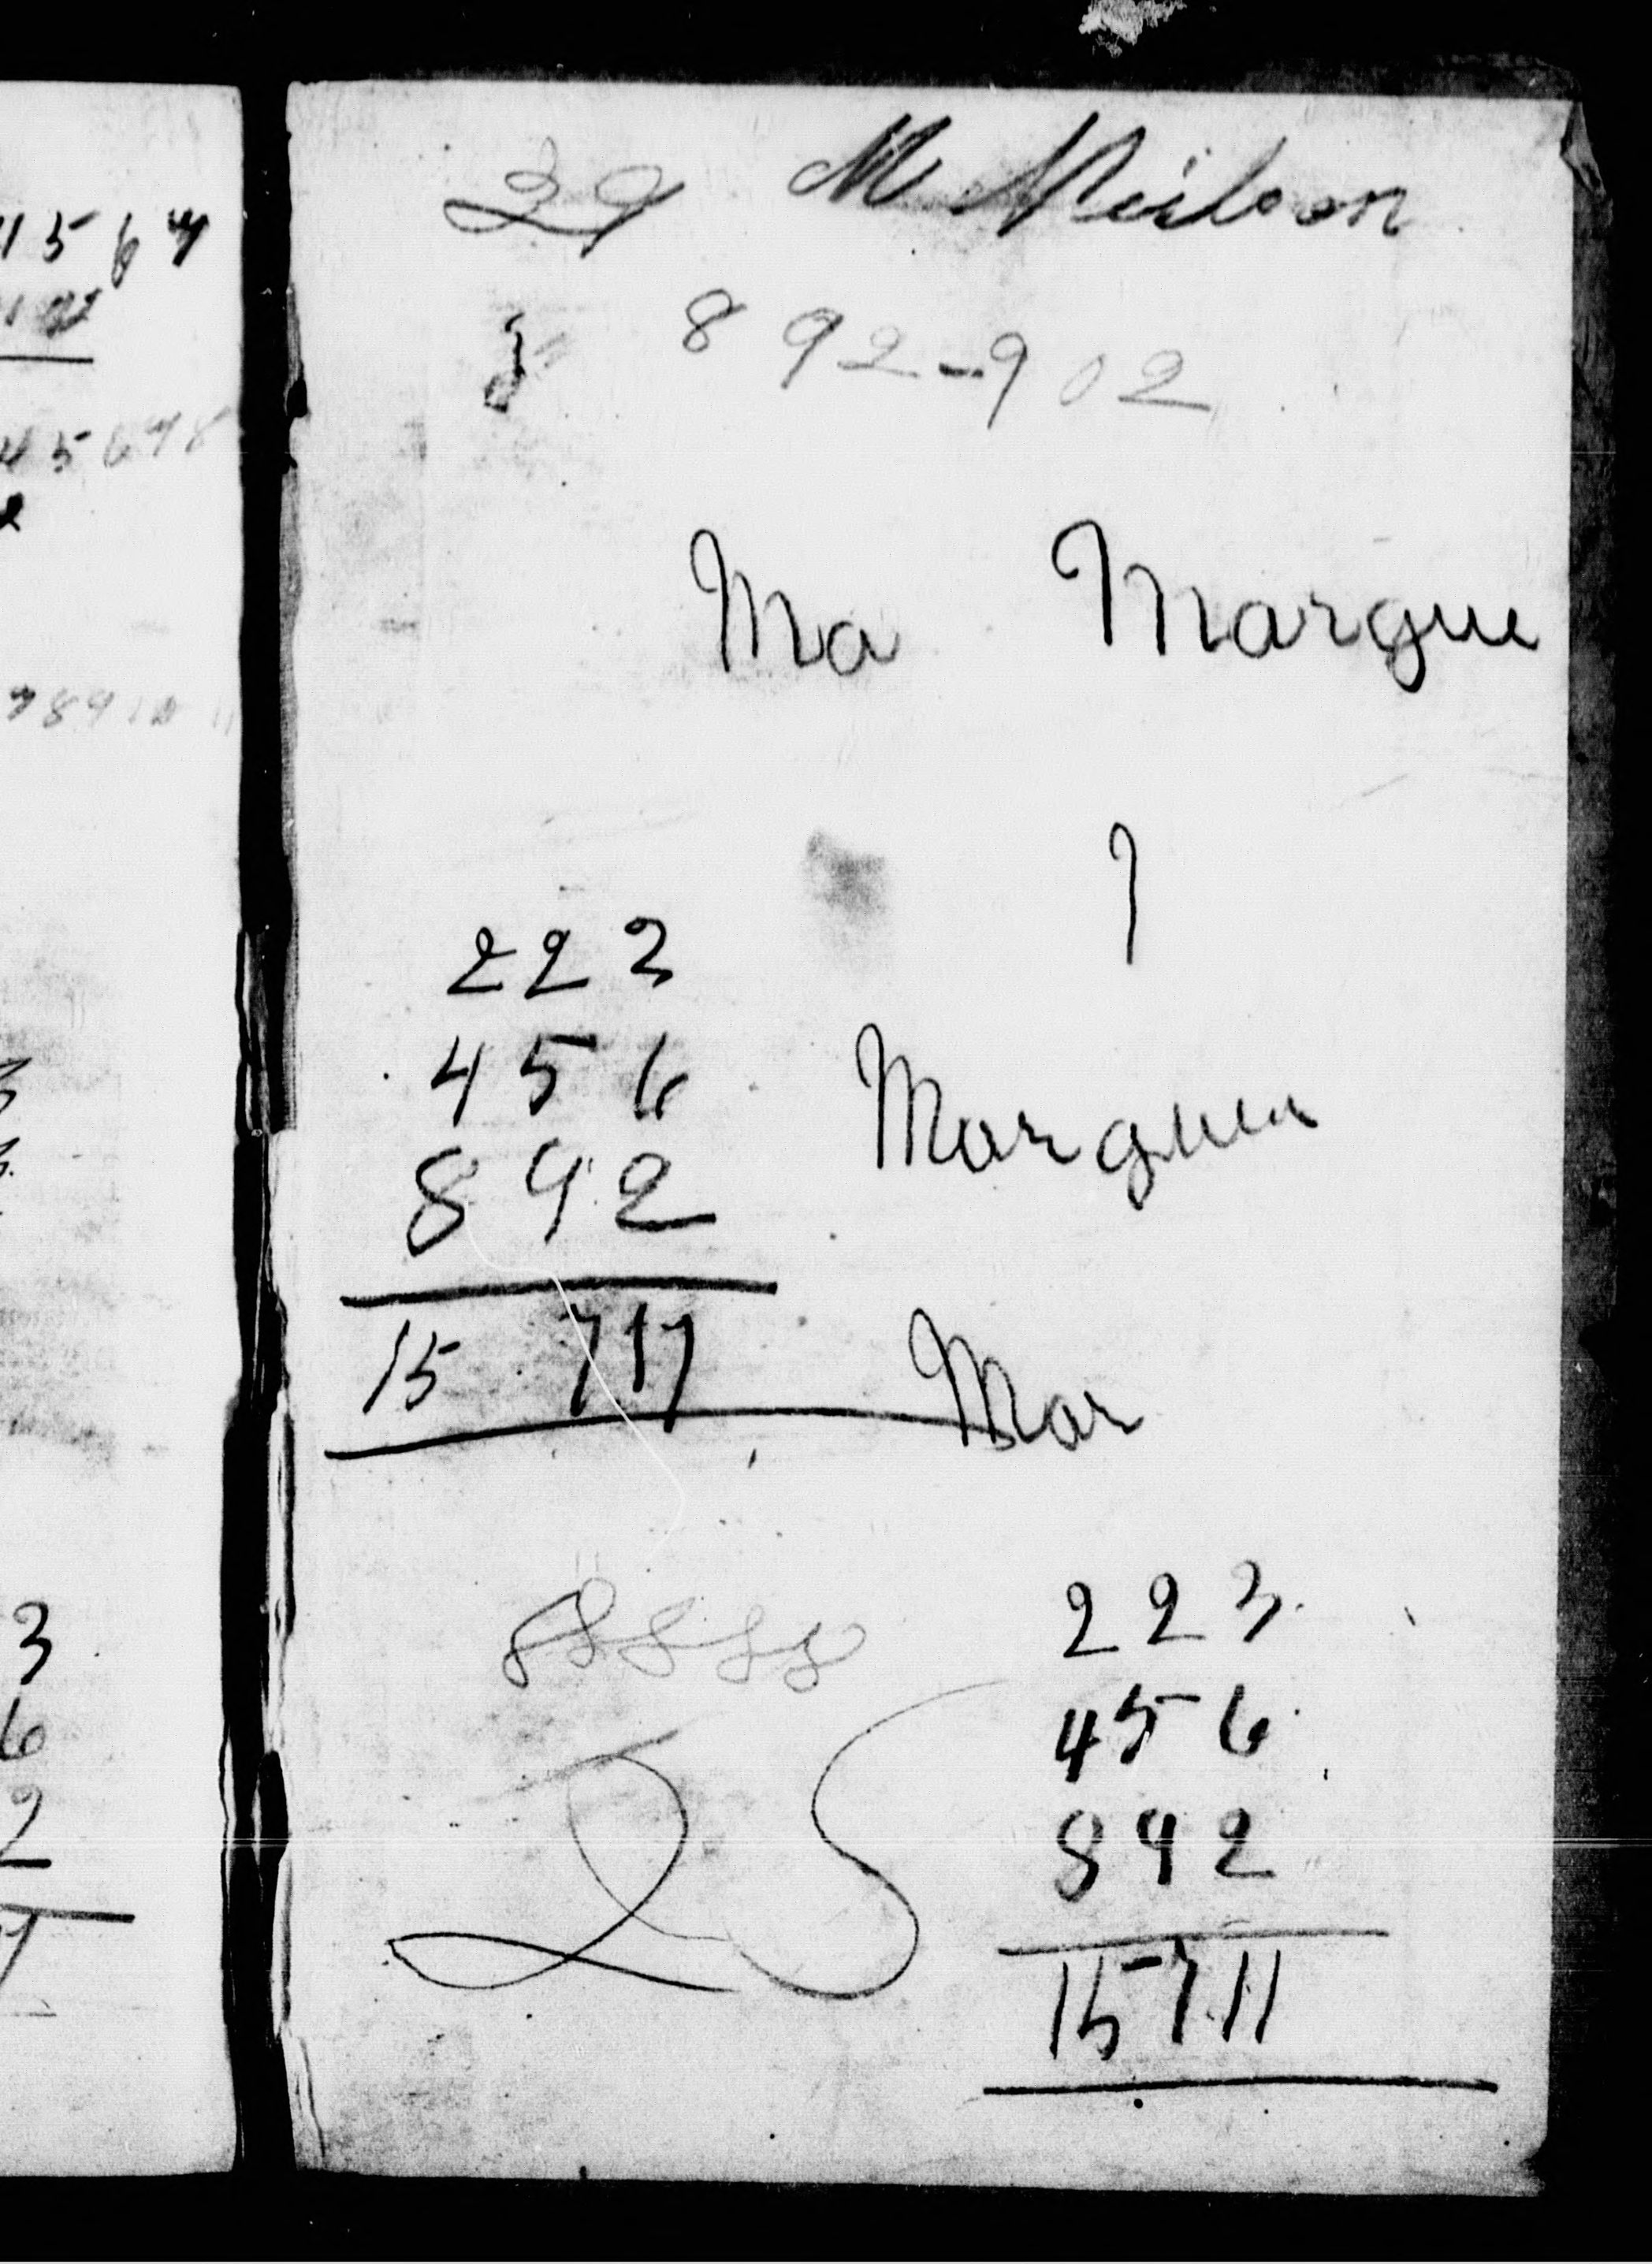 4567
45678
78910 11
3
6
2
29 M Neilson
892-902
Ma Margue
223
456
892
15 717
Margue
Mar
88888
25
223
456
892
15711